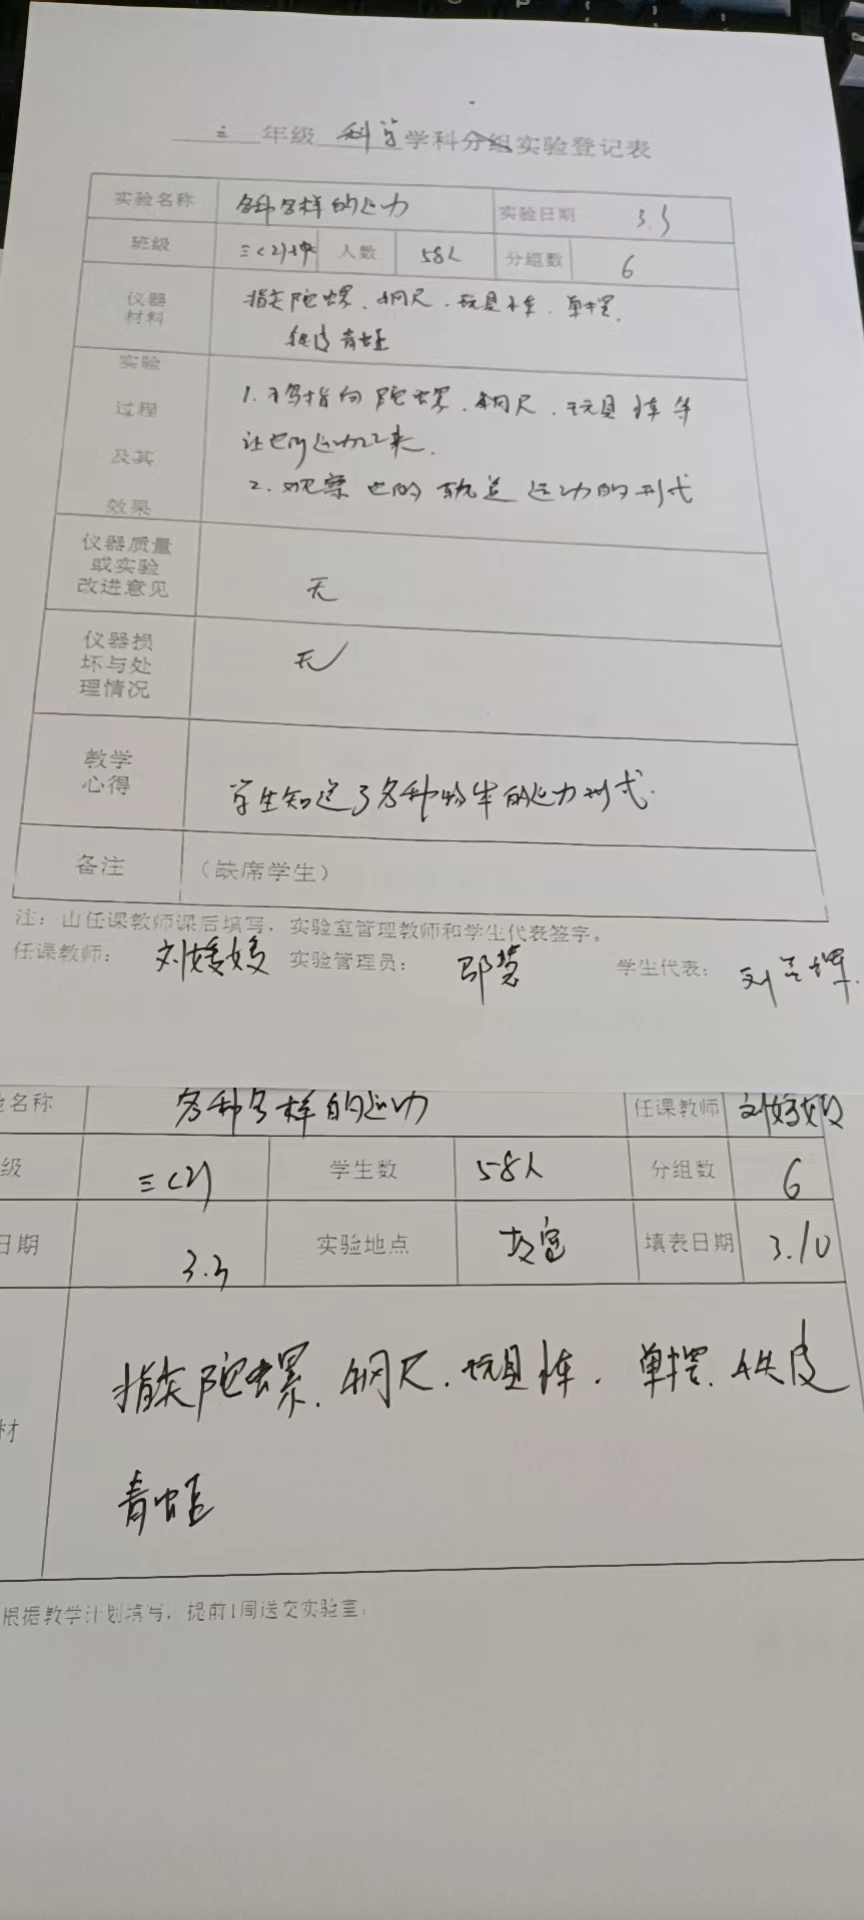 三年级 科学学科分组实验登记表
实验名称 各种各样的运动 实验日期 3.3
班级 三(2)班 人数 58人 分组数 6
仪器 指尖陀螺、钢尺、玩具小车、单摆、
材料 铁皮青蛙
实验
过程 1. 陀螺、钢尺、玩具车等
及其 让它们运动起来.
效果 2. 观察它的轨迹运动的形式
仪器质量
或实验 无
改进意见
仪器损
坏与处 无
理情况
教学
心得 学生知道了各种物体的运动形式.
备注 (缺席学生)
注：由任课教师课后填写，实验室管理教师和学生代表签字。
任课教师： 刘媛媛 实验管理员： 邵慧 学生代表： 刘
验名称 各种各样的运动 任课教师 刘媛媛
级 三(2) 学生数 58人 分组数 6
日期 3.3 实验地点 教室 填表日期 3.10
材 指尖陀螺、钢尺、玩具车、单摆、铁皮
青蛙
根据教学计划填写，提前1周送交实验室。